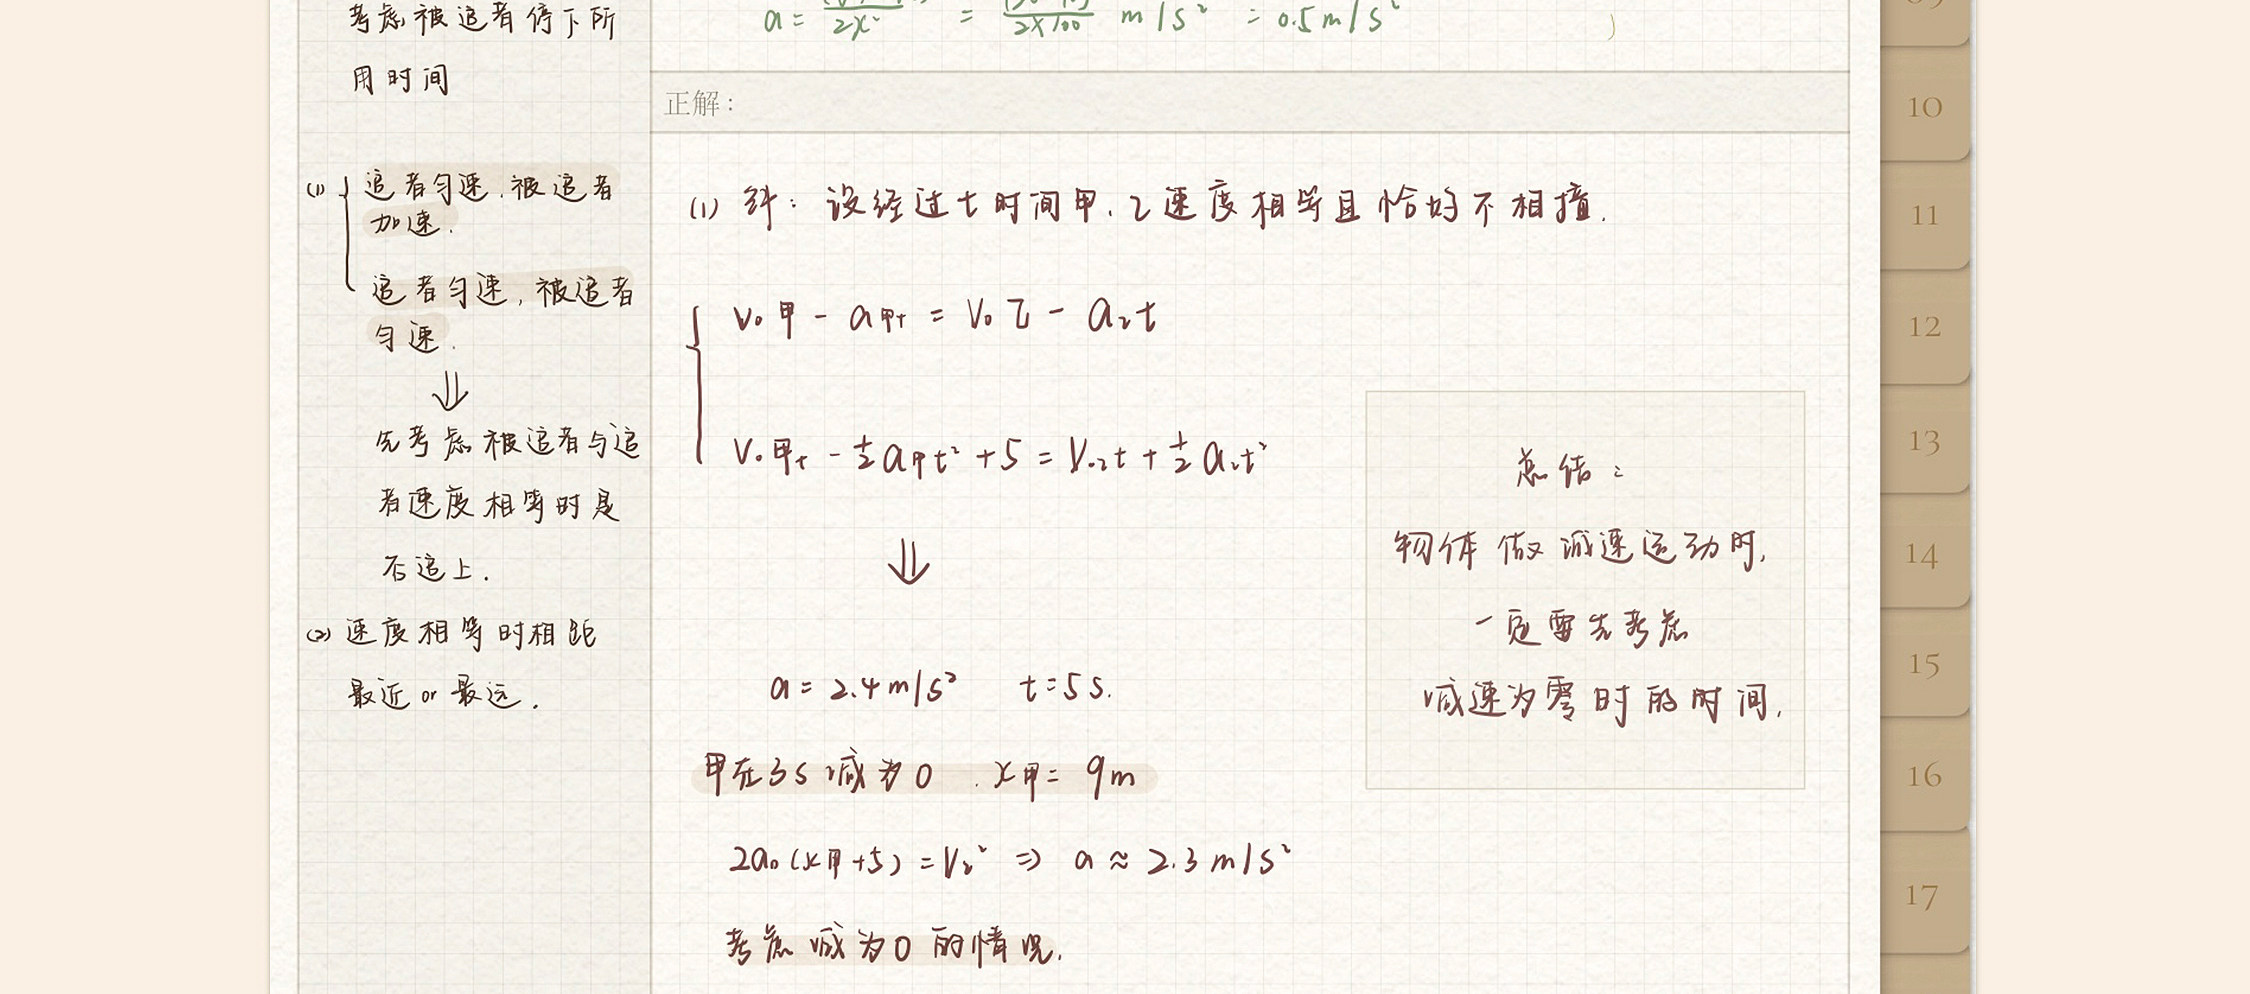 考虑被追者停下所
用时间
(1) 追者匀速,被追者
加速.
追者匀速,被追者
匀速.
⇓
先考虑被追者与追
者速度相等时是
否追上.
(2) 速度相等时相距
最近 or 最远.
a = = m/s² = 0.5m/s²
2x 2×100
正解:
(1) 解: 设经过t时间甲、乙速度相等且恰好不相撞.
V₀甲 - a甲t = V₀乙 - a乙t
V₀甲t - ½a甲t² + 5 = V₀乙t + ½a乙t²
⇓
a = 2.4m/s² t=5s.
甲在3s减为0 . x甲 = 9m
2a₀(x甲+5) = V乙² ⇒ a ≈ 2.3m/s²
考虑减为0的情况.
总结:
物体做减速运动时,
一定要先考虑
减速为零时的时间.
09
10
11
12
13
14
15
16
17